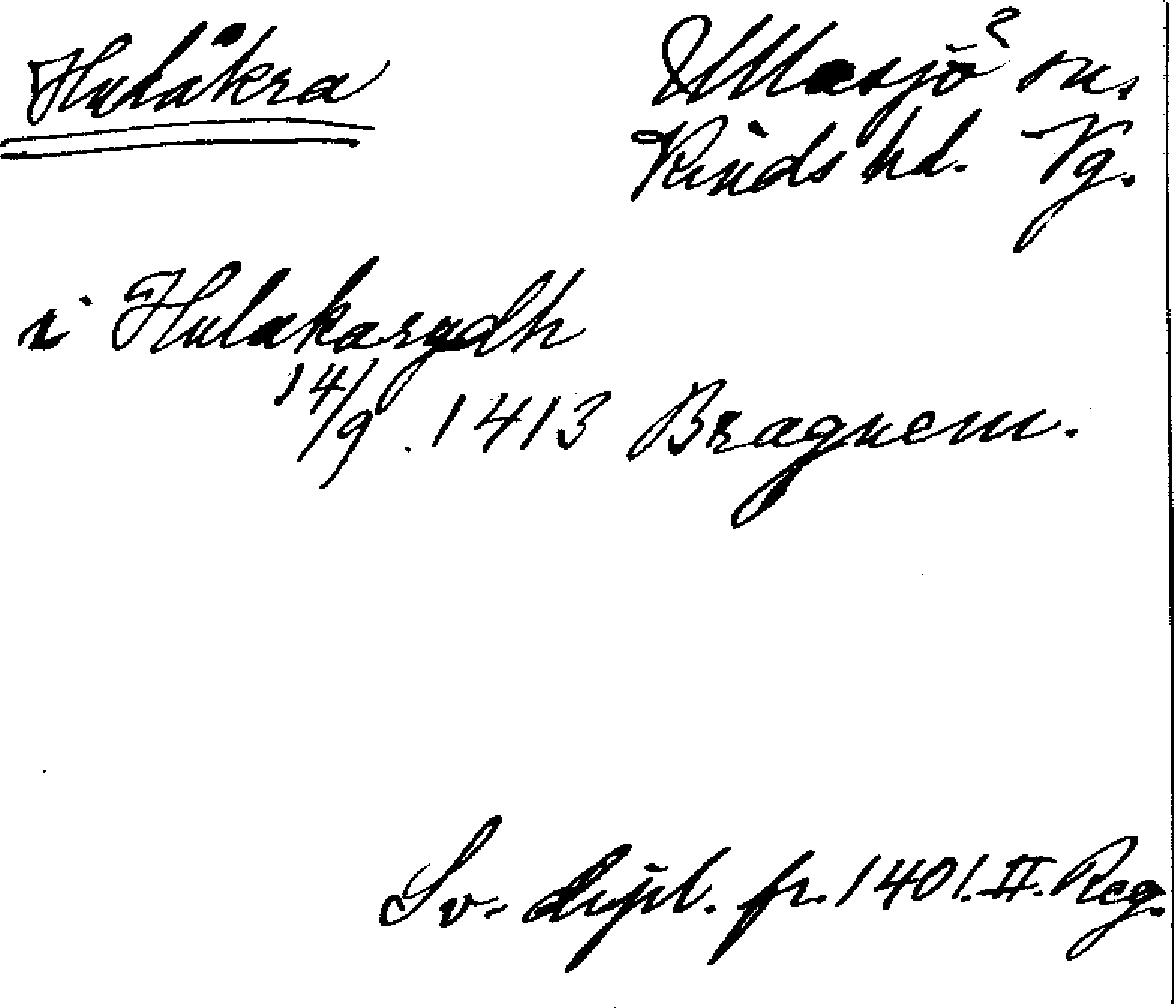 Hulåkra
Ullasjö? sn.
Kinds hd. Vg.
i Hulakarydh
14/9. 1413 Bragnem.
Sv. dipl. fr. 1401. II. Reg.